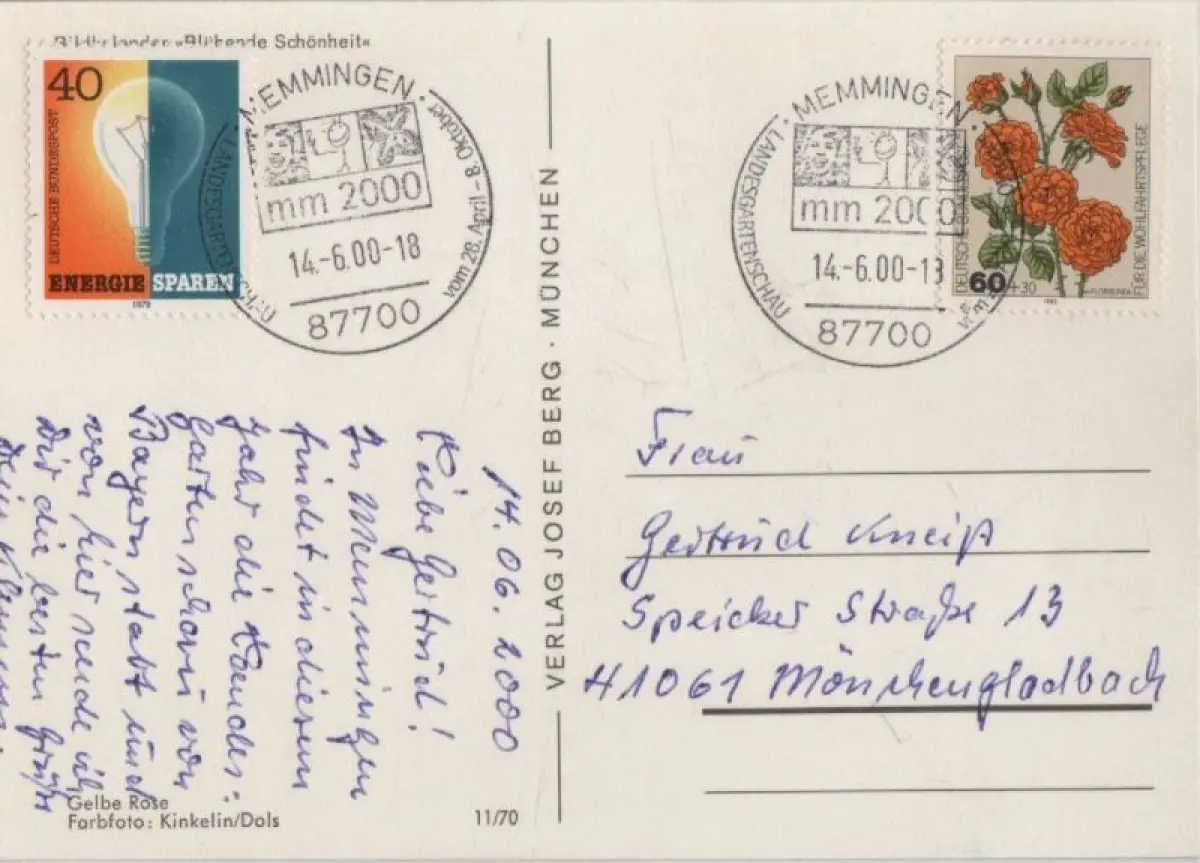 Bildkalender »Blühende Schönheit«
40
DEUTSCHE BUNDESPOST
ENERGIE SPAREN
1979
MEMMINGEN
LANDESGARTENSCHAU
vom 28. April - 8. Oktober
mm 2000
14.-6.00-18
87700
MEMMINGEN
LANDESGARTENSCHAU
mm 2000
14.-6.00-13
87700
DEUTSCHE BUNDESPOST
60+30
FLORIBUNDA
1982
FÜR DIE WOHLFAHRTSPFLEGE
VERLAG JOSEF BERG · MÜNCHEN
14.06.2000
Liebe Gertrud!
In Memmingen
findet in diesem
Jahr die Landes-
gartenschau von
Bayern statt und
von hier sende ich
Dir die besten Grüße
Dein
Frau
Gertrud Kneiß
Speicker Straße 13
41061 Mönchengladbach
Gelbe Rose
Farbfoto: Kinkelin/Dols
11/70